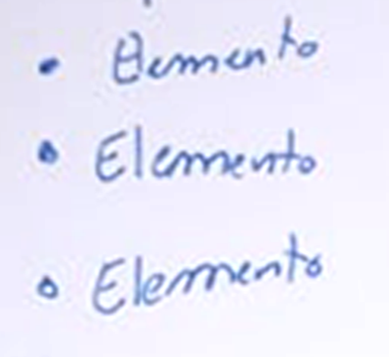 • Elemento
• Elemento
• Elemento